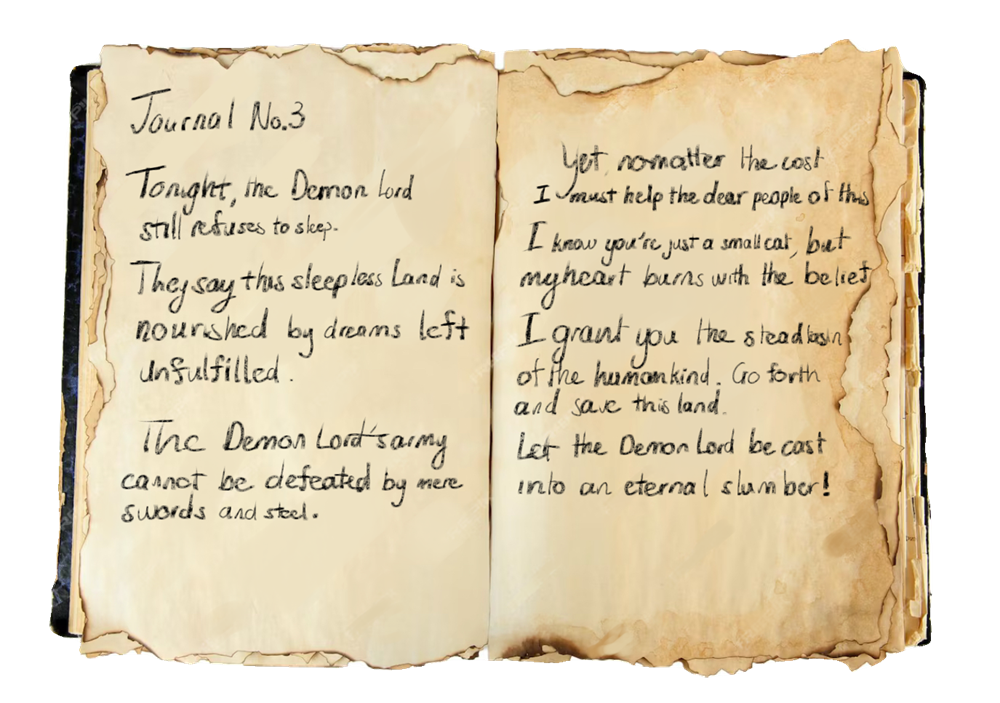 Journal No.3
Tonight, the Demon Lord
still refuses to sleep.
They say this sleepless Land is
nourished by dreams left
unfulfilled.
The Demon Lord's army
cannot be defeated by mere
swords and steel.
Yet, nomatter the cost
I must help the dear people of this
I know you're just a small cat, but
my heart burns with the belief
I grant you the
of the humankind. Go forth
and save this land.
Let the Demon Lord be cast
into an eternal slumber!